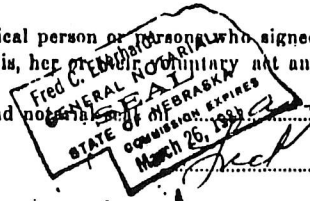 ical person or persons who signed
is, her or their voluntary act an
d notarial
Fred C. Eberhardt
GENERAL NOTARIAL
SEAL
STATE OF NEBRASKA
COMMISSION EXPIRES
March 26,